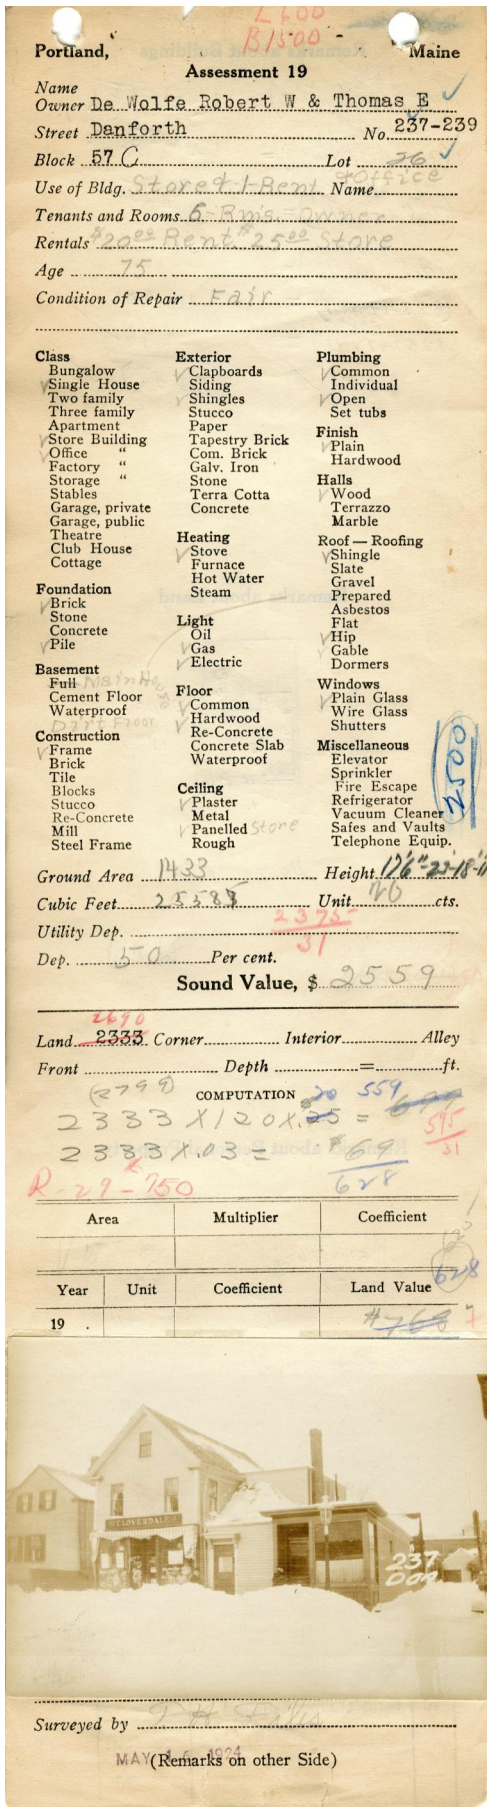 L 600
B 1500 -
Portland, Maine
Assessment 19
Name
Owner De Wolfe Robert W & Thomas E
Street Danforth No. 237-239
Block 57 C Lot 26
Use of Bldg. Store & 1-Rent Name + Office
Tenants and Rooms. 6-Rms. - Owner
Rentals $20.00 Rent $25.00 Store
Age 75
Condition of Repair Fair
Class
Bungalow
Single House
Two family
Three family
Apartment
Store Building
Office "
Factory "
Storage "
Stables
Garage, private
Garage, public
Theatre
Club House
Cottage
Foundation
Brick
Stone
Concrete
Pile
Basement
Full Main House
Cement Floor
Waterproof
Dirt Floor
Construction
Frame
Brick
Tile
Blocks
Stucco
Re-Concrete
Mill
Steel Frame
Exterior
Clapboards
Siding
Shingles
Stucco
Paper
Tapestry Brick
Com. Brick
Galv. Iron
Stone
Terra Cotta
Concrete
Heating
Stove
Furnace
Hot Water
Steam
Light
Oil
Gas
Electric
Floor
Common
Hardwood
Re-Concrete
Concrete Slab
Waterproof
Ceiling
Plaster
Metal
Panelled Store
Rough
Plumbing
Common
Individual
Open
Set tubs
Finish
Plain
Hardwood
Halls
Wood
Terrazzo
Marble
Roof — Roofing
Shingle
Slate
Gravel
Prepared
Asbestos
Flat
Hip
Gable
Dormers
Windows
Plain Glass
Wire Glass
Shutters
Miscellaneous
Elevator
Sprinkler
Fire Escape
Refrigerator
Vacuum Cleaner
Safes and Vaults
Telephone Equip.
2500
Ground Area 1433 Height
Cubic Feet Unit 20 cts.
Utility Dep. 2375
31
Dep. 50 Per cent.
Sound Value, $ 2559
2690
Land 2333 Corner Interior Alley
Front Depth = ft.
(2799)
COMPUTATION 20 559
2333 X 120 X .25 = 699
595
31
2333 X .03 = $69
628
R-29-750
Area Multiplier Coefficient
628
Year Unit Coefficient Land Value
19 . #768
CLOVERDALE
237
Dan
Surveyed by
MAY 1924
(Remarks on other Side)